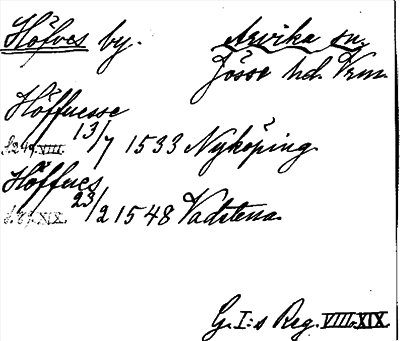 Höfves by. Arvika sn.
Jösse hd. Vrm.
Höffuesse
13/7 1533 Nyköping.
Höffues
23/2 1548 Vadstena.
G. I:s Reg. VIII. XIX.